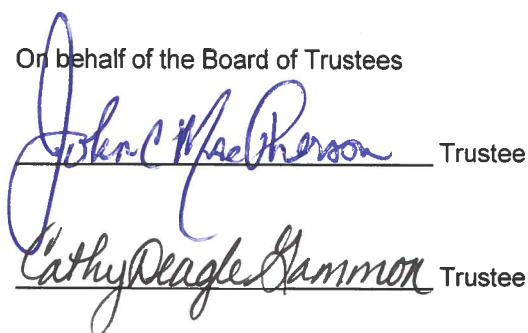 On behalf of the Board of Trustees
John C MacPherson Trustee
Cathy Deagle Gammon Trustee